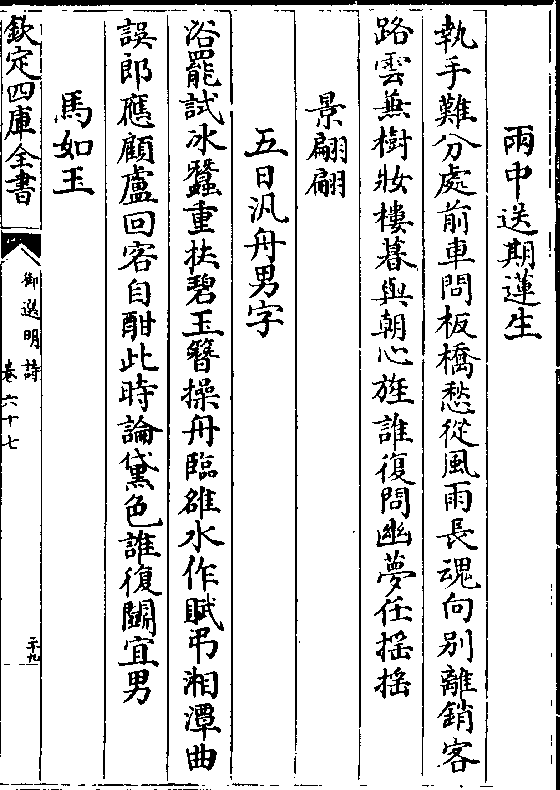 雨中送期蓮生
執手難分處前車問板橋愁從風雨長魂向别離銷客
路雲蕪樹妝樓暮與朝心旌誰復問幽夢任揺揺
景翩翩
五日汎舟男字
浴罷試冰蠶重扶碧玉簮操舟臨雒水作賦弔湘潭曲
誤郎應顧盧回客自酣此時論黛色誰復鬬宜男
馬如玉
欽定四庫全書
御選明詩
卷六十七
二十九